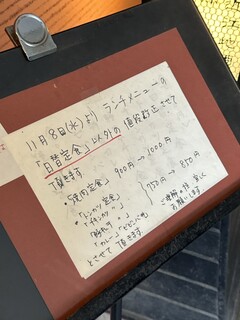 11月8日(水)より ランチメニューの
「日替定食」以外の 値段改正させて
頂きます
焼肉定食 900円→1000円
・「トンカツ定食」
・「チキンカツ 〃」
750円→850円
「カレー」
とさせて頂きます。
ご理解の程 宜しく
お願いします